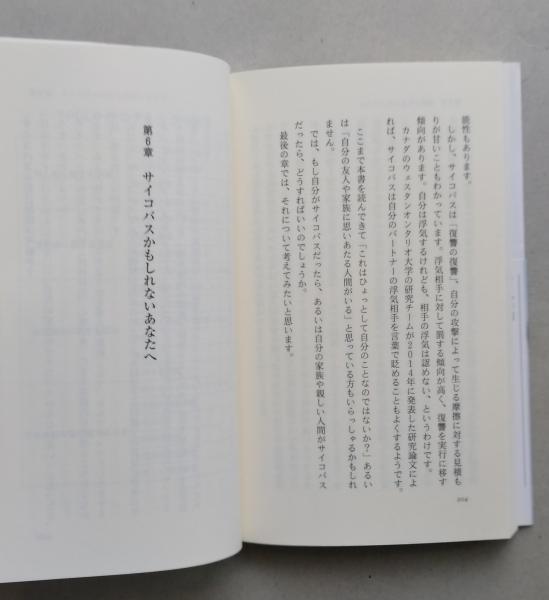 能性もあります。
しかし、サイコパスは「復讐の復讐」、自分の攻撃によって生じる摩擦に対する見積も
りが甘いこともわかっています。浮気相手に対して罰する傾向が高く、復讐を実行に移す
傾向があります。自分は浮気するけれども、相手の浮気は認めない、というわけです。
カナダのウェスタンオンタリオ大学の研究チームが2014年に発表した研究論文によ
れば、サイコパスは自分のパートナーの浮気相手を言葉で貶めることもよくするようです。
ここまで本書を読んできて「これはひょっとして自分のことなのではないか？」あるい
は「自分の友人や家族に思いあたる人間がいる」と思っている方もいらっしゃるかもしれ
ません。
では、もし自分がサイコパスだったら、あるいは自分の家族や親しい人間がサイコパス
だったら、どうすればいいのでしょうか。
最後の章では、それについて考えてみたいと思います。
204
第6章 サイコパスかもしれないあなたへ